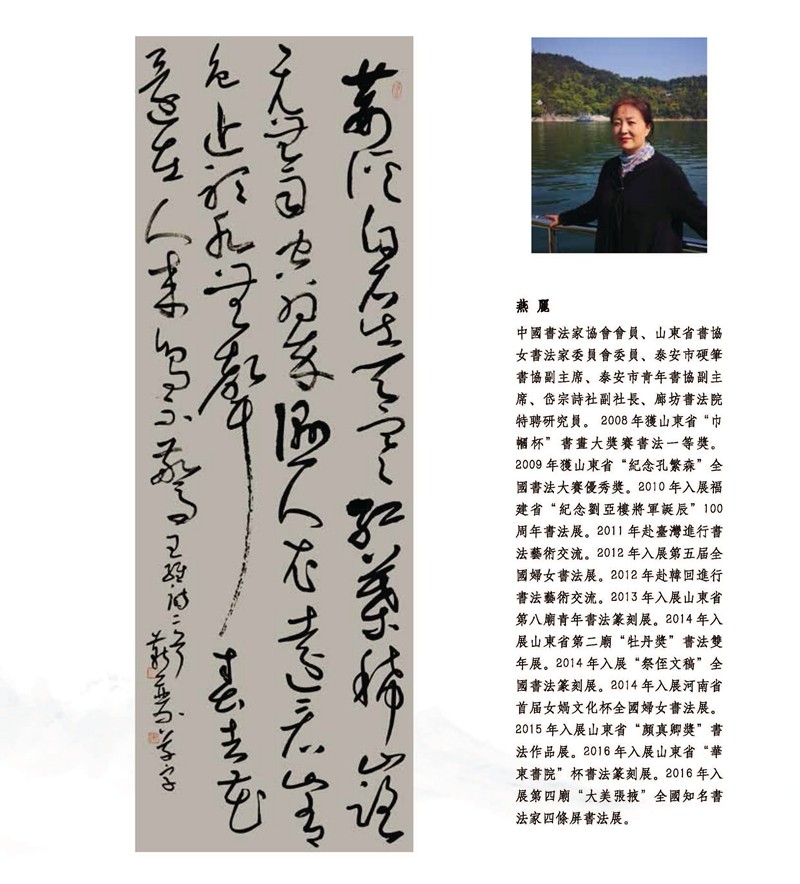 荆溪白石出天寒紅葉稀山路
元無雨空翠濕人衣遠看山有
色近聽水無聲春去花
還在人來鳥不驚 王維詩二首 草字
燕 麗
中國書法家協會會員、山東省書協
女書法家委員會委員、泰安市硬筆
書協副主席、泰安市青年書協副主
席、岱宗詩社副社長、廊坊書法院
特聘研究員。 2008 年獲山東省“巾
幗杯”書畫大獎賽書法一等獎。
2009 年獲山東省“紀念孔繁森”全
國書法大賽優秀獎。2010 年入展福
建省“紀念劉亞樓將軍誕辰”100
周年書法展。2011 年赴臺灣進行書
法藝術交流。2012 年入展第五屆全
國婦女書法展。2012 年赴韓回進行
書法藝術交流。2013 年入展山東省
第八廟青年書法篆刻展。2014 年入
展山東省第二廟“牡丹獎”書法雙
年展。2014 年入展“祭侄文稿”全
國書法篆刻展。2014 年入展河南省
首届女媧文化杯全國婦女書法展。
2015 年入展山東省“顏真卿獎”書
法作品展。2016 年入展山東省“華
東書院”杯書法篆刻展。2016 年入
展第四廟“大美張掖”全國知名書
法家四條屏書法展。